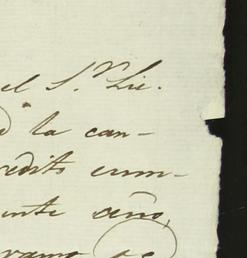 el S.r Lic.
la can-
redito cum-
ente año,